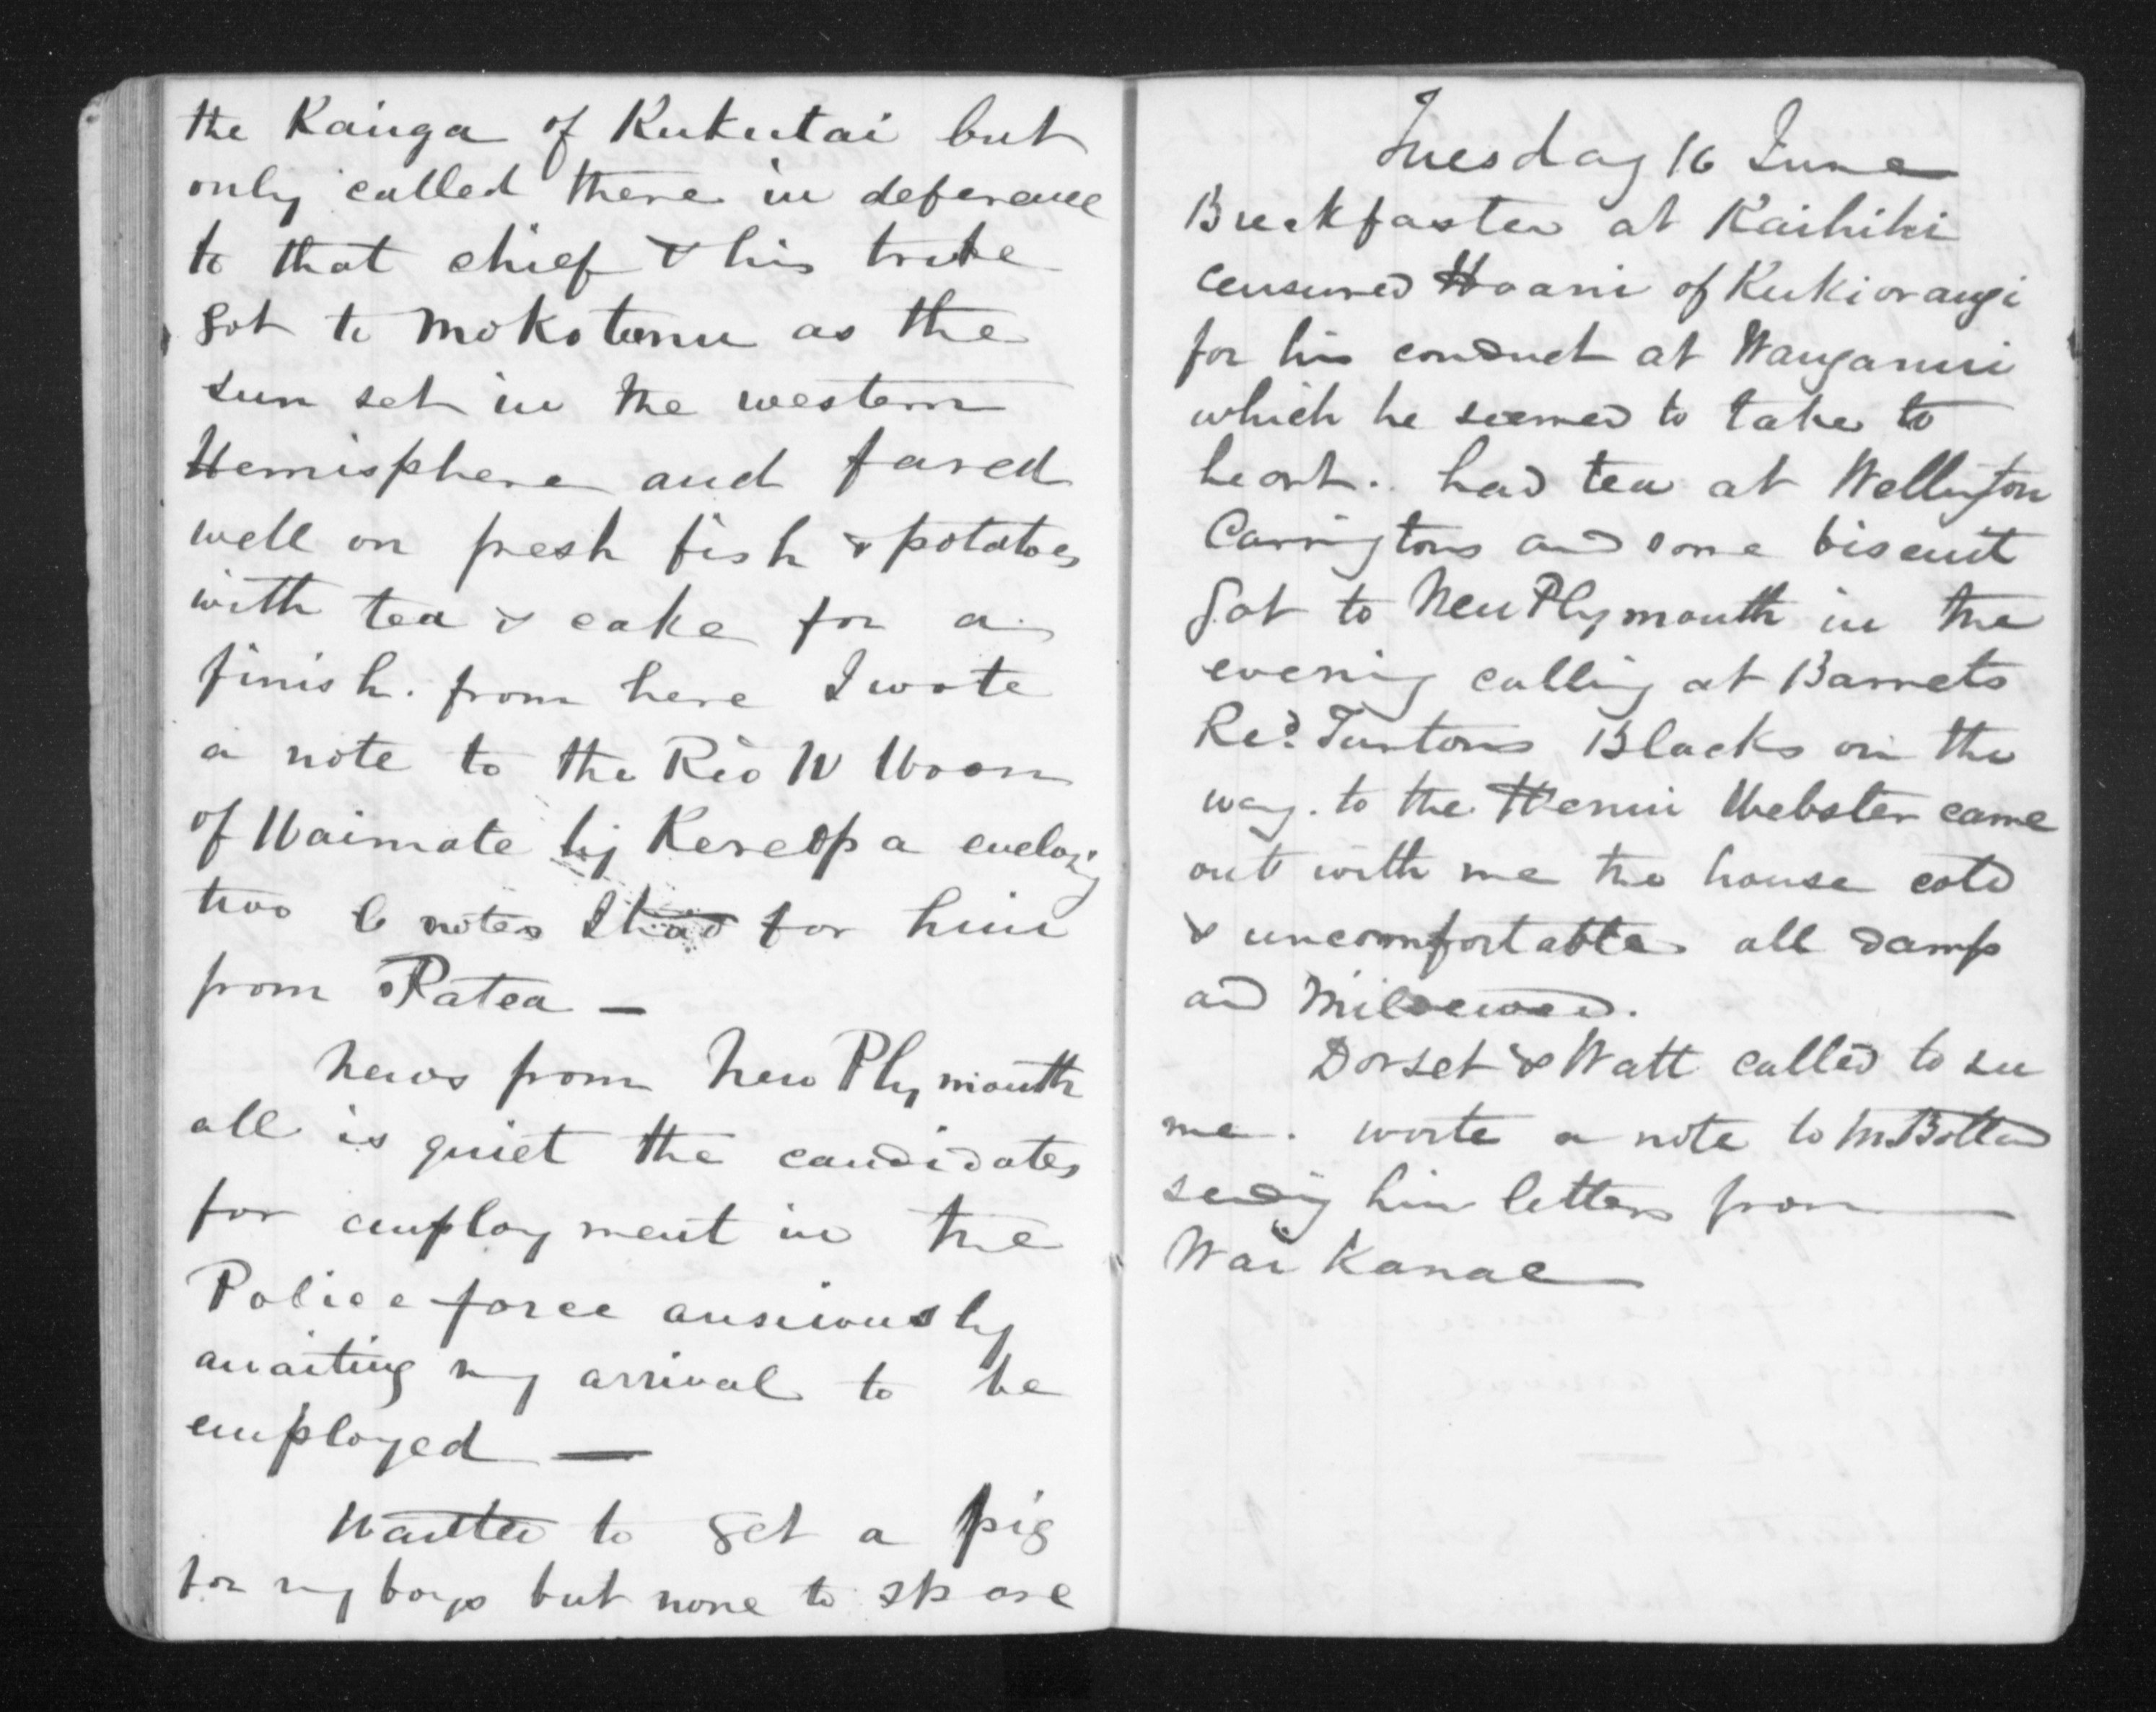 the Kainga of Kukutai but
only called there in deference
to that chief & his tribe
got to Mokotunu as the
sun set in the western
Hemisphere and fared
well on fresh fish & potatoes
with tea & cake for a
finish. from here I wrote
a note to the Rev W Woon
of Waimate by Kereopa enclosing
two notes I had for him
from Patea —
News from New Plymouth
all is quiet the candidates
for employment in the
Police force ansiously
awaiting my arrival to be
employed —
Wanted to get a pig
for my boys but none to spare
Tuesday 16 June
Breekfasted at Kaihihi
censured Hoani of Kukiorangi
for his conduct at Wanganui
which he seemed to take to
heart. had tea at Wellington
Carringtons and some biscuit
Got to New Plymouth in the
evening calling at Barrets
Revd. Turtons Blacks on the
way. to the Henui Webster came
out with me the house cold
& uncomfortable all damp
and Mildewed.
Dorset & Watt called to see
me. wrote a note to
sending him letters from
Wai Kanae